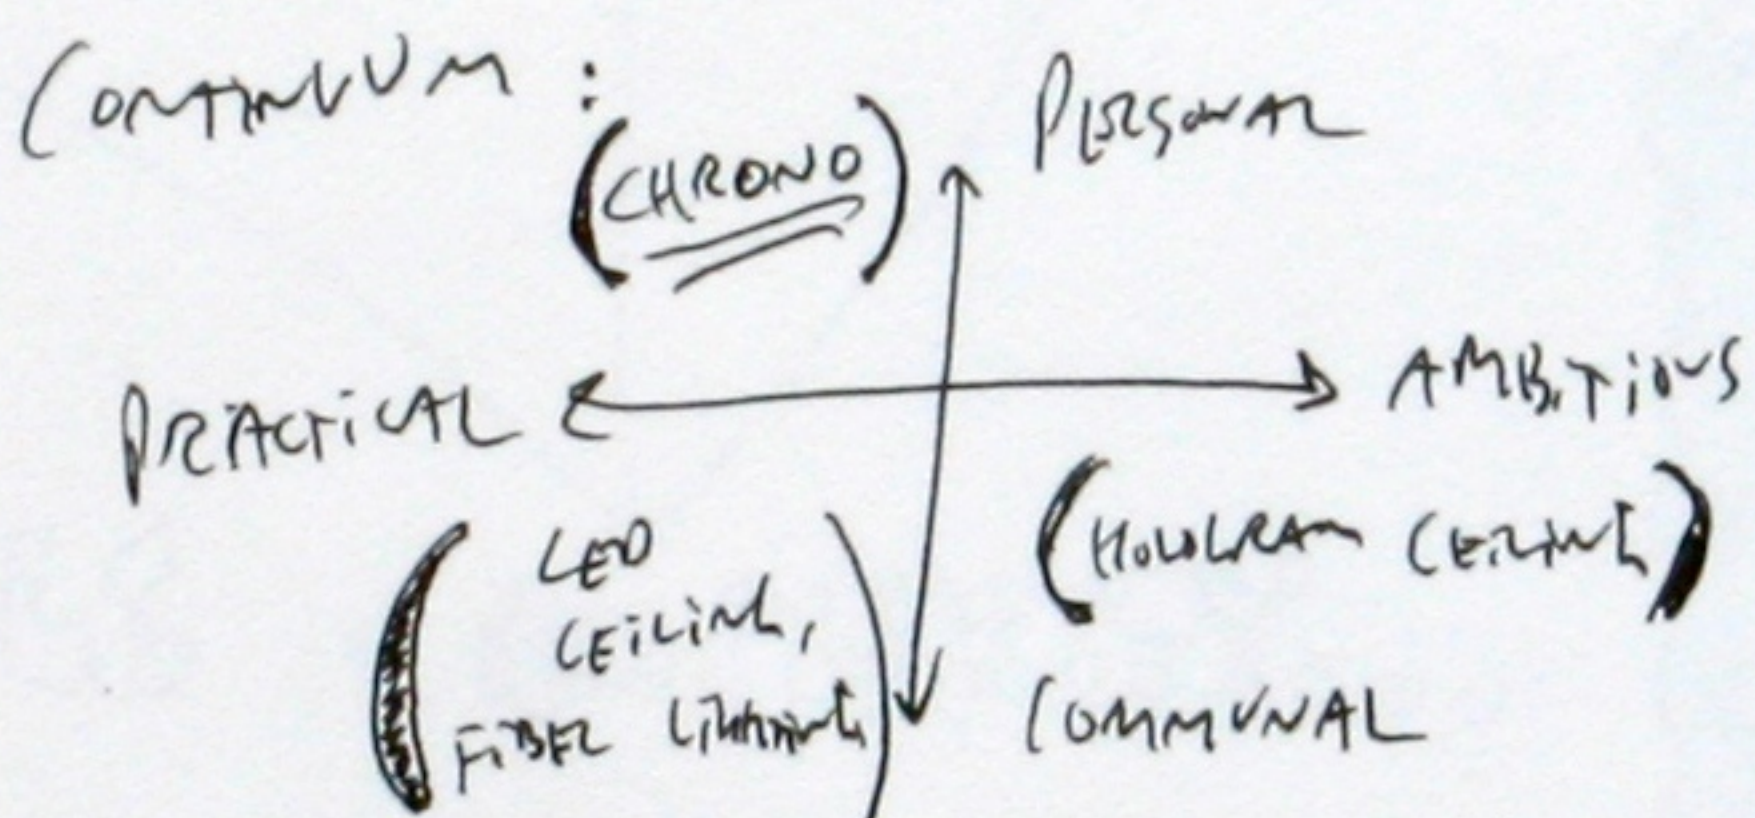 CONTINUUM :
(CHRONO)
PERSONAL
PRACTICAL
AMBITIOUS
(HOLOGRAM CEILING)
(LED
CEILING,
FIBER LIGHTING)
COMMUNAL